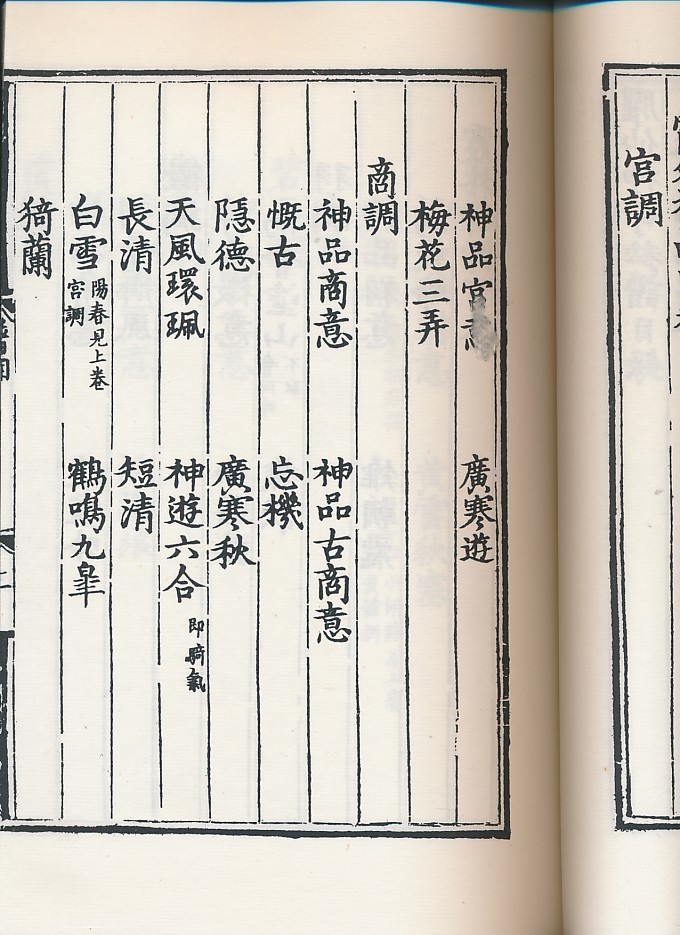 宮調
神品宮意 廣寒遊
梅花三弄
商調
神品商意 神品古商意
慨古 忘機
隱德 廣寒秋
天風環珮 神遊六合 即騎氣
長清 短清
白雪 陽春見上卷宮調 鶴鳴九皐
猗蘭